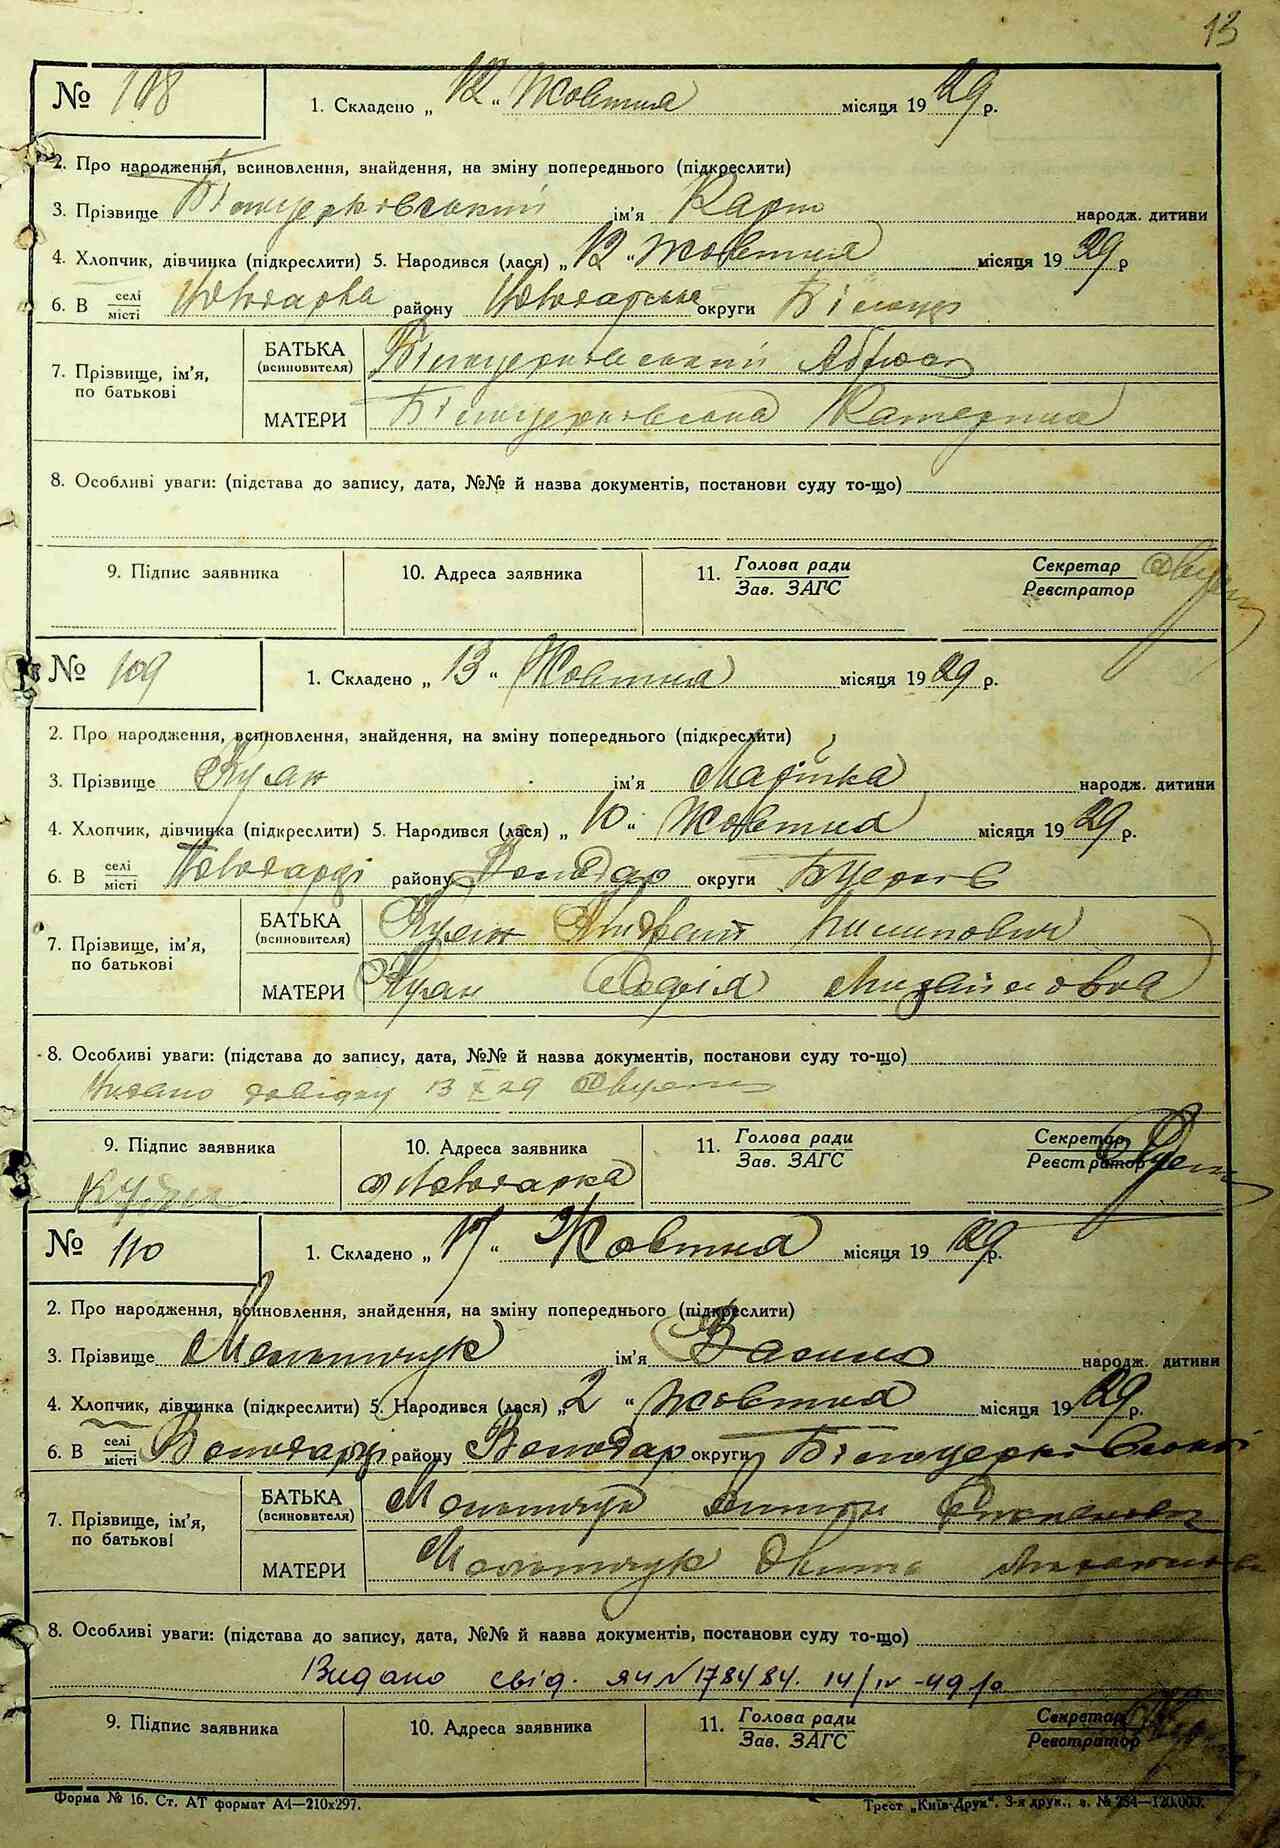 13
№ 108
1. Складено „ 12 “ Жовтня місяця 19 29 р.
2. Про народження, всиновлення, знайдення, на зміну попереднього (підкреслити)
3. Прізвище Білоцерківський ім'я народж. дитини
4. Хлопчик, дівчинка (підкреслити) 5. Народився (лася) „ 12 “ Жовтня місяця 19 29 р
6. В селі місті Володарка району Володарське округи Білоцер
7. Прізвище, ім'я, по батькові
БАТЬКА (всиновителя) Білоцерковський
МАТЕРИ Білоцерковська Катерина
8. Особливі уваги: (підстава до запису, дата, №№ й назва документів, постанови суду то-що)
9. Підпис заявника 10. Адреса заявника 11. Голова ради Зав. ЗАГС Секретар Реєстратор
№ 109
1. Складено „ 13 “ Жовтня місяця 19 29 р.
2. Про народження, всиновлення, знайдення, на зміну попереднього (підкреслити)
3. Прізвище ім'я Марійка народж. дитини
4. Хлопчик, дівчинка (підкреслити) 5. Народився (лася) „ 10 “ Жовтня місяця 19 29 р.
6. В селі місті Володарці району Володар округи БЦерків
7. Прізвище, ім'я, по батькові
БАТЬКА (всиновителя) Пилипович
МАТЕРИ Софія Михайловна
8. Особливі уваги: (підстава до запису, дата, №№ й назва документів, постанови суду то-що)
Видано довідку 13 X 29
9. Підпис заявника 10. Адреса заявника 11. Голова ради Зав. ЗАГС Секретар Реєстратор
Володарка
№ 110
1. Складено „ 17 “ Жовтня місяця 19 29 р.
2. Про народження, всиновлення, знайдення, на зміну попереднього (підкреслити)
3. Прізвище Мельничук ім'я Василь народж. дитини
4. Хлопчик, дівчинка (підкреслити) 5. Народився (лася) „ 2 “ Жовтня місяця 19 29 р.
6. В селі місті Володарці району Володар округи Білоцерківської
7. Прізвище, ім'я, по батькові
БАТЬКА (всиновителя) Мельничук
МАТЕРИ Мельничук
8. Особливі уваги: (підстава до запису, дата, №№ й назва документів, постанови суду то-що)
Видано свід. ЯЧ N 178484. 14/IV-49 р
9. Підпис заявника 10. Адреса заявника 11. Голова ради Зав. ЗАГС Секретар Реєстратор
Форма № 16. Ст. АТ формат А4—210х297. Трест „Київ-Друк“. 3-я друк., з. № 254—120.000.